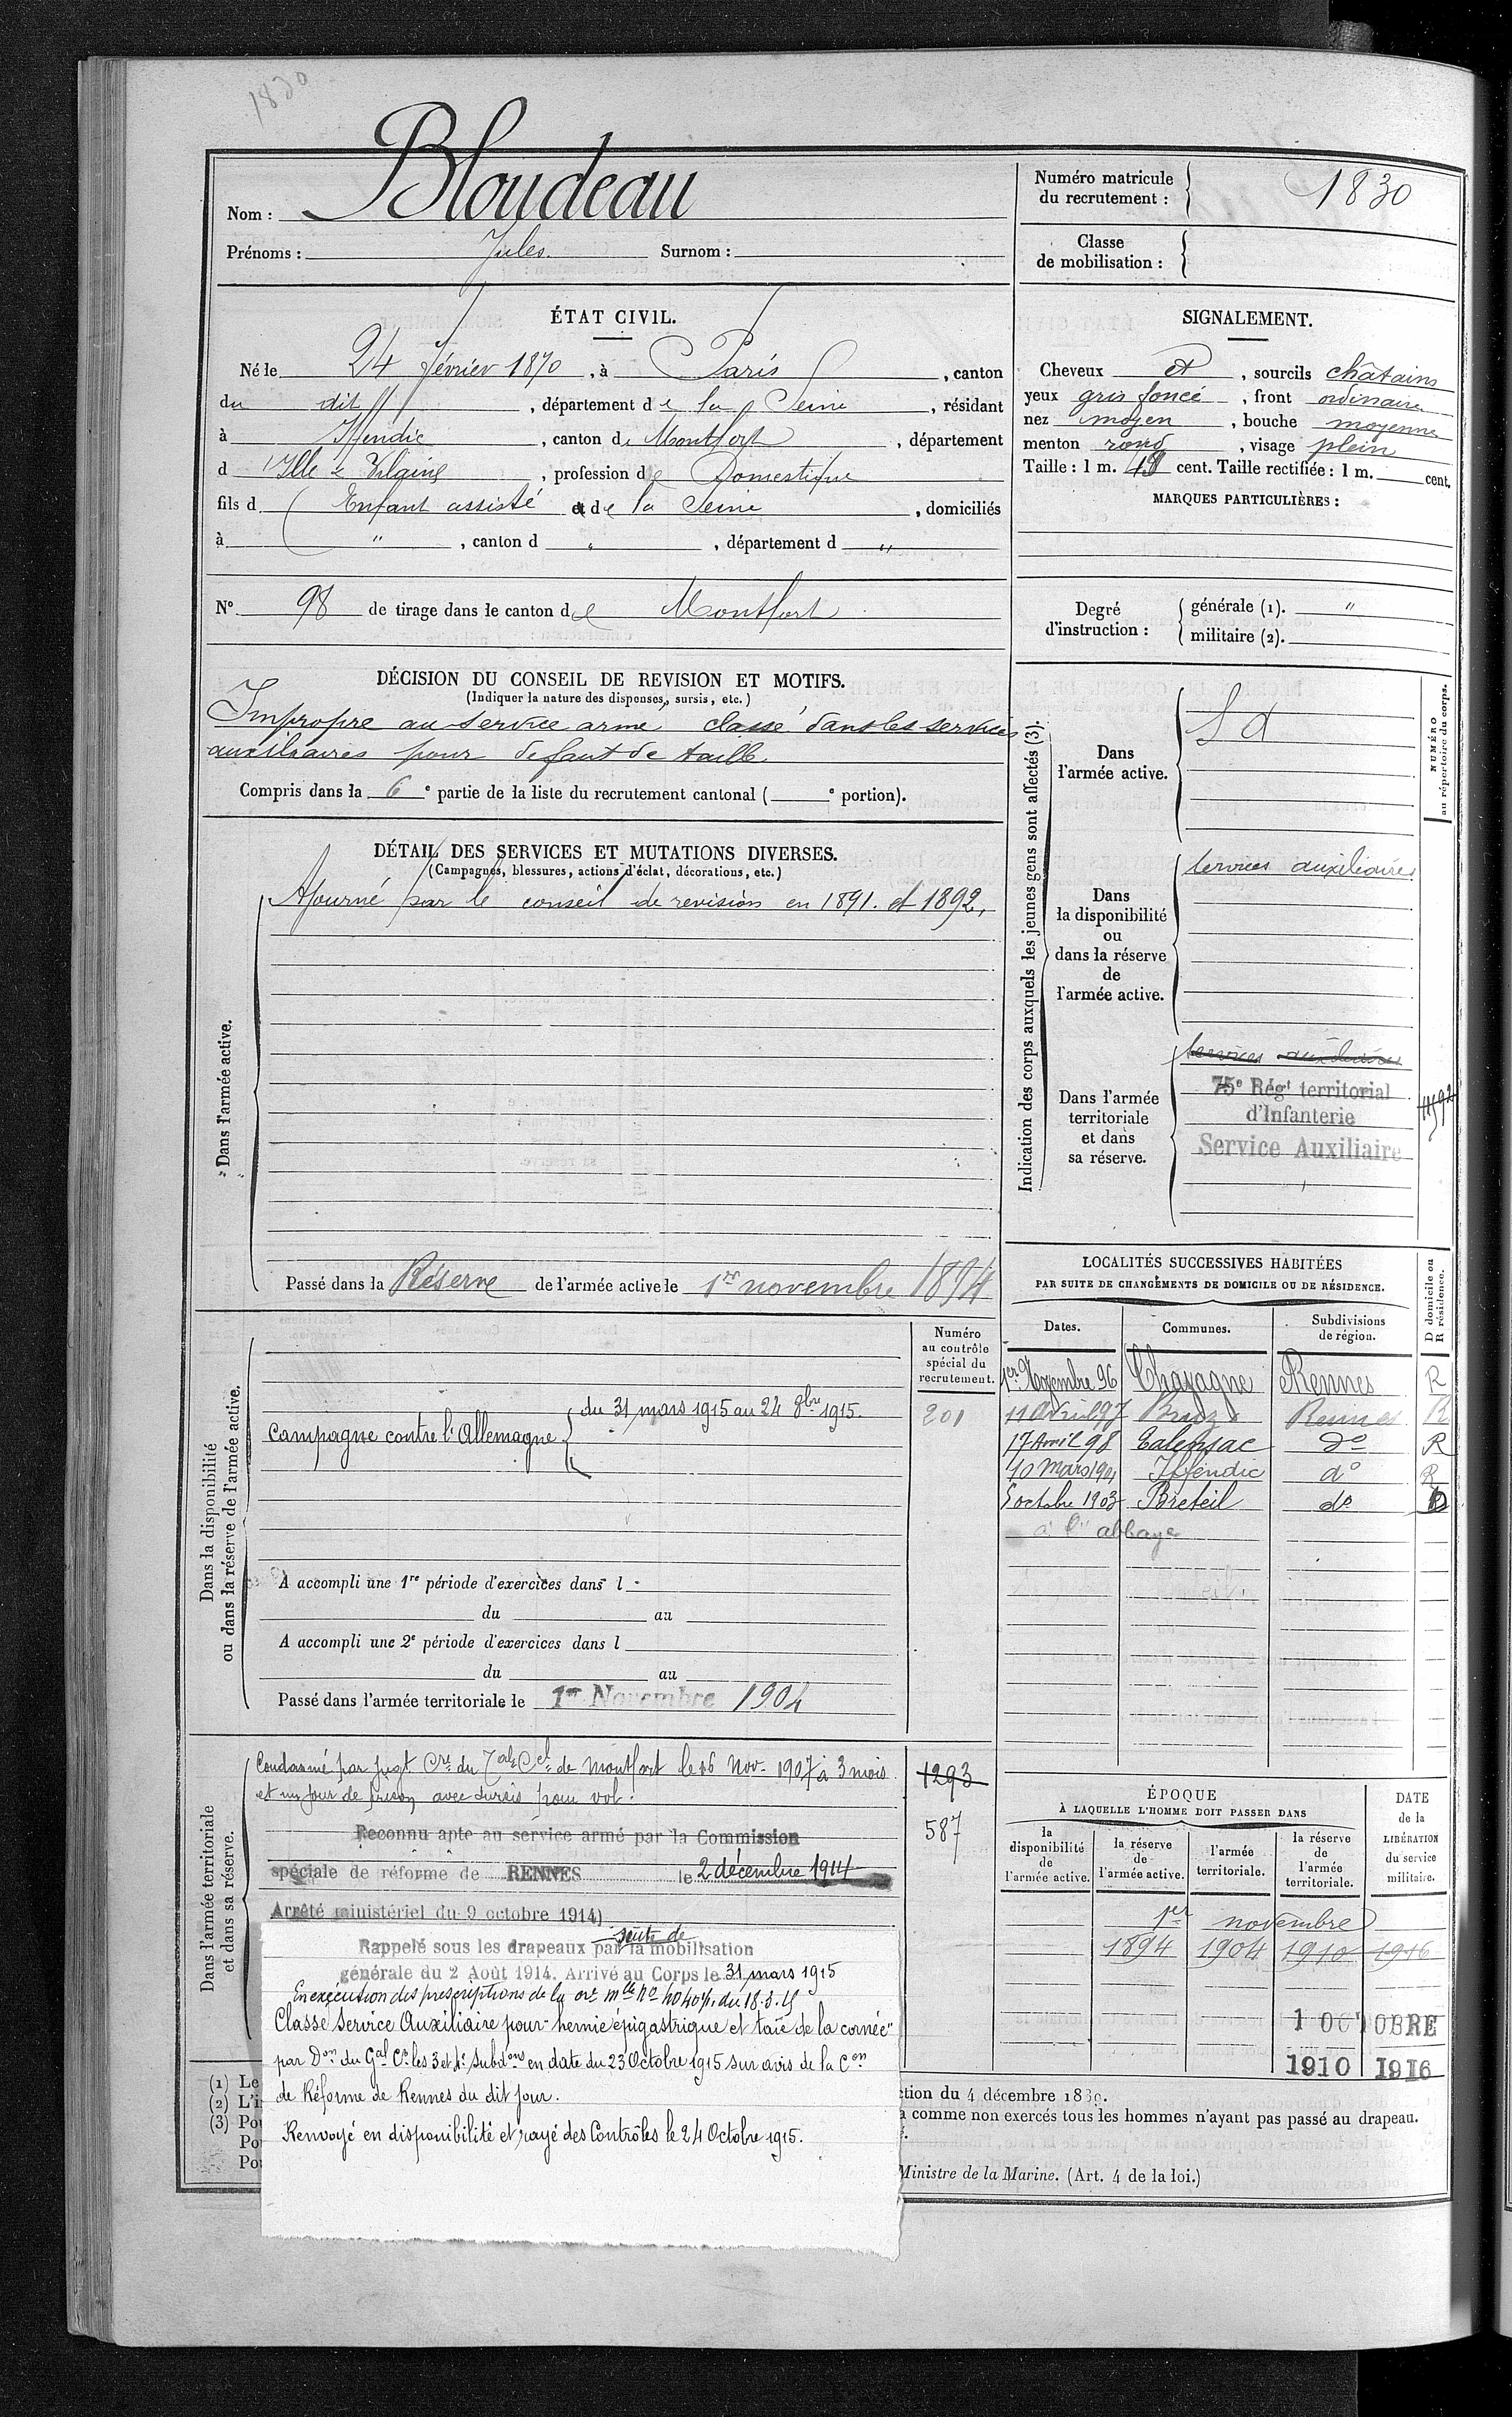 1830
Nom : Blondeau
Prénoms : Jules. Surnom :
Numéro matricule
du recrutement : 1830
Classe
de mobilisation :
ÉTAT CIVIL.
Né le 24 février 1870, à Paris, canton
du dit, département de la Seine, résidant
à Iffendic, canton de Montfort, département
d'Ille & Vilaine, profession de Domestique
fils d Enfant assisté et de la Seine, domiciliés
à " , canton d " , département d "
N° 98 de tirage dans le canton de Montfort
SIGNALEMENT.
Cheveux et, sourcils châtains
yeux gris foncé, front ordinaire
nez moyen, bouche moyenne
menton rond, visage plein
Taille : 1 m. 48 cent. Taille rectifiée : 1 m. cent.
MARQUES PARTICULIÈRES :
Degré
d'instruction :
générale (1). "
militaire (2).
DÉCISION DU CONSEIL DE REVISION ET MOTIFS.
(Indiquer la nature des dispenses, sursis, etc.)
Impropre au service armé classé dans les services
auxiliaires pour défaut de taille.
Compris dans la 6e partie de la liste du recrutement cantonal ( e portion).
DÉTAIL DES SERVICES ET MUTATIONS DIVERSES.
(Campagnes, blessures, actions d'éclat, décorations, etc.)
Dans l'armée active.
Ajourné par le conseil de revision en 1891. et 1892,
Passé dans la Réserve de l'armée active le 1er novembre 1894
Indication des corps auxquels les jeunes gens sont affectés (3).
NUMÉRO
au répertoire du corps.
Dans
l'armée active.
Dans
la disponibilité
ou
dans la réserve
de
l'armée active.
Services auxiliaires
Dans l'armée
territoriale
et dans
sa réserve.
Services auxiliaires
75e Régt territorial
d'Infanterie
Service Auxiliaire
LOCALITÉS SUCCESSIVES HABITÉES
PAR SUITE DE CHANGEMENTS DE DOMICILE OU DE RÉSIDENCE.
D domicile ou
R résidence.
Dates. Communes. Subdivisions
de région.
1er Novembre 96 Chavagne Rennes R
11 Avril 97 Bruz Rennes R
17 Avril 98 Talensac do R
10 Mars 1901 Iffendic do R
5 octobre 1903 Breteil do D
à l' abbaye
Dans la disponibilité
ou dans la réserve de l'armée active.
Numéro
au contrôle
spécial du
recrutement.
201
Campagne contre l'Allemagne { du 31 mars 1915 au 24 8bre 1915.
A accompli une 1re période d'exercices dans l
du au
A accompli une 2e période d'exercices dans l
du au
Passé dans l'armée territoriale le 1er Novembre 1904
Dans l'armée territoriale
et dans sa réserve.
Condamné par jugt Cre du Tal Cel de Montfort le 16 Nov. 1907 à 3 mois
et un jour de prison avec sursis pour vol.
1293
587
Reconnu apte au service armé par la Commission
spéciale de réforme de RENNES le 2 décembre 1914
Arrêté ministériel du 9 octobre 1914)
suite de
Rappelé sous les drapeaux par la mobilisation
générale du 2 Août 1914. Arrivé au Corps le 31 mars 1915
En exécution des prescriptions de la
Classé Service Auxiliaire pour "hernie épigastrique et taie de la cornée"
par Don du Gal Ct les 3 et 4e Subdons en date du 23 Octobre 1915 sur avis de la Con
de Réforme de Rennes du dit jour.
Renvoyé en disponibilité et rayé des Contrôles le 24 Octobre 1915.
ÉPOQUE
À LAQUELLE L'HOMME DOIT PASSER DANS
DATE
de la
LIBÉRATION
du service
militaire.
la
disponibilité
de
l'armée active.
la réserve
de
l'armée active.
l'armée
territoriale.
la réserve
de
l'armée
territoriale.
1er novembre
1894 1904 1910 1916
1 OCTOBRE
1910 1916
(1) Le
(2) L'i
(3) Pou
Pou
Pou
ction du 4 décembre 1889.
a comme non exercés tous les hommes n'ayant pas passé au drapeau.
Ministre de la Marine. (Art. 4 de la loi.)